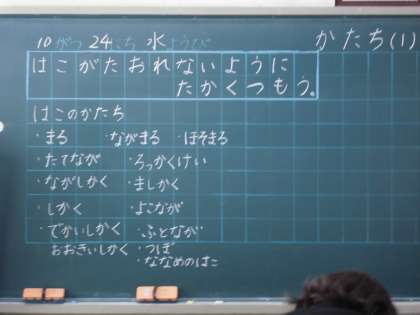 10がつ24にち水ようび
かたち(1)
はこがたおれないように
たかくつもう。
はこのかたち
・まる ・ながまる ・ほそまる
・たてなが ・ろっかくけい
・ながしかく ・ましかく
・しかく ・よこなが
・でかいしかく ・ふとなが
おおきいしかく ・つぼ
・ななめのはこ